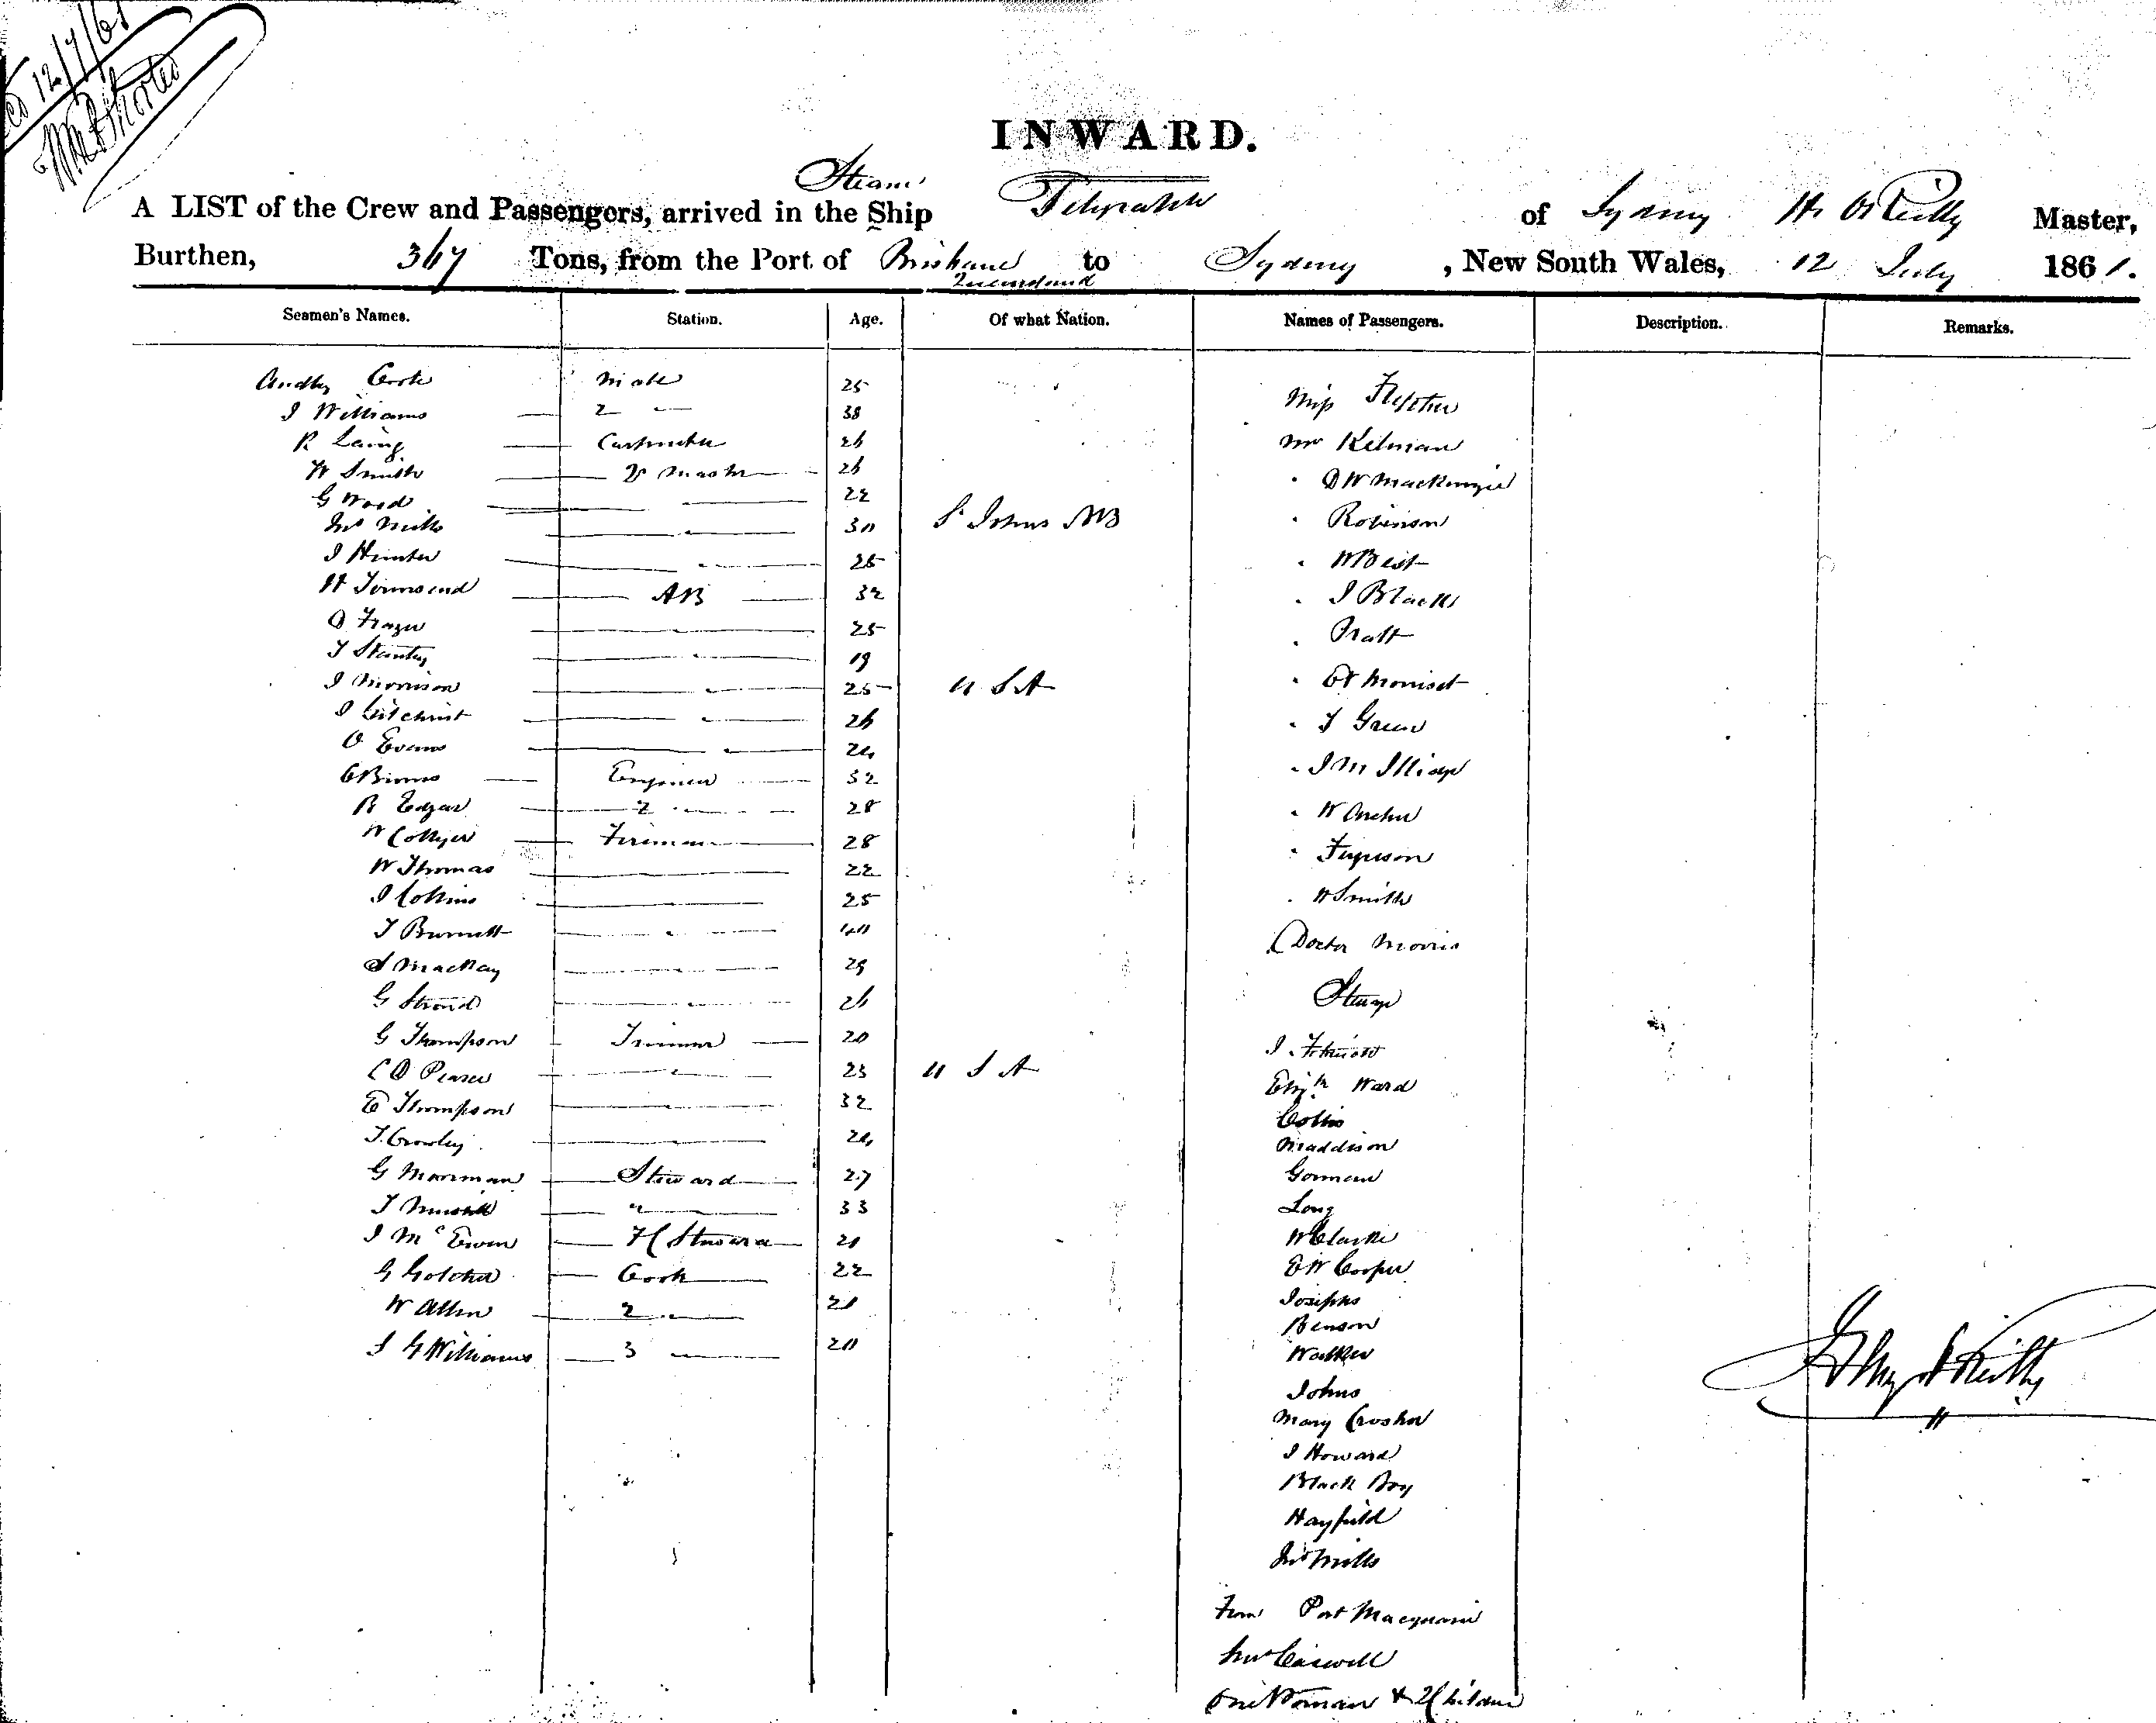 12/7/61
INWARD.
Steam
A LIST of the Crew and Passengers, arrived in the Ship Telegraph of Sydney H O'Reilly Master,
Burthen, 367 Tons, from the Port of Brisbane to Sydney, New South Wales, 12 July 1861.
Queensland
Seamen's Names. Station. Age. Of what Nation. Names of Passengers. Description. Remarks.
Cook Mate 25
J Williams 2 " 38
R Laing Carpenter 26
W Smith Master 26
G Wood 22
Jno Mills " 30 St Johns NB
J Hunter " 25
H Townsend AB 32
D Frazer " 25
T Stanley " 19
J Morrison " 25 U S A
J Gilchrist " 26
O Evans " 24
C Binns Engineer 32
R Edgar 2 " 28
W Collyer Fireman 28
W Thomas 22
J Collins 25
T Burnett " 40
S Mackay 29
G Stroud " 26
G Thompson Trimmer 20
C D Pearce " 23 U S A
E Thompson " 32
T. Crowley 24
G Moorman Steward 27
T " 33
J McEwen F C Steward 21
G Golcher Cook 22
W Allen 2 " 21
J G Williams 3 20
Miss
Mr Kelman
" D W Mackenzie
" Robinson
" W Best
" J Black
" Pratt
" Morriset
" T Green
" J M Illidge
" W Archer
" Ferguson
" W Smith
Doctor Morris
Steerage
J
Elizth Ward
Collis
Maddison
Gorman
Long
W Clarke
E W Cooper
Josephs
Benson
Walker
Johns
Mary Crosher
J Howard
Black Boy
Hayfield
Jno Mills
From Port Macquarie
Mrs Caswell
One Woman & 2 Children